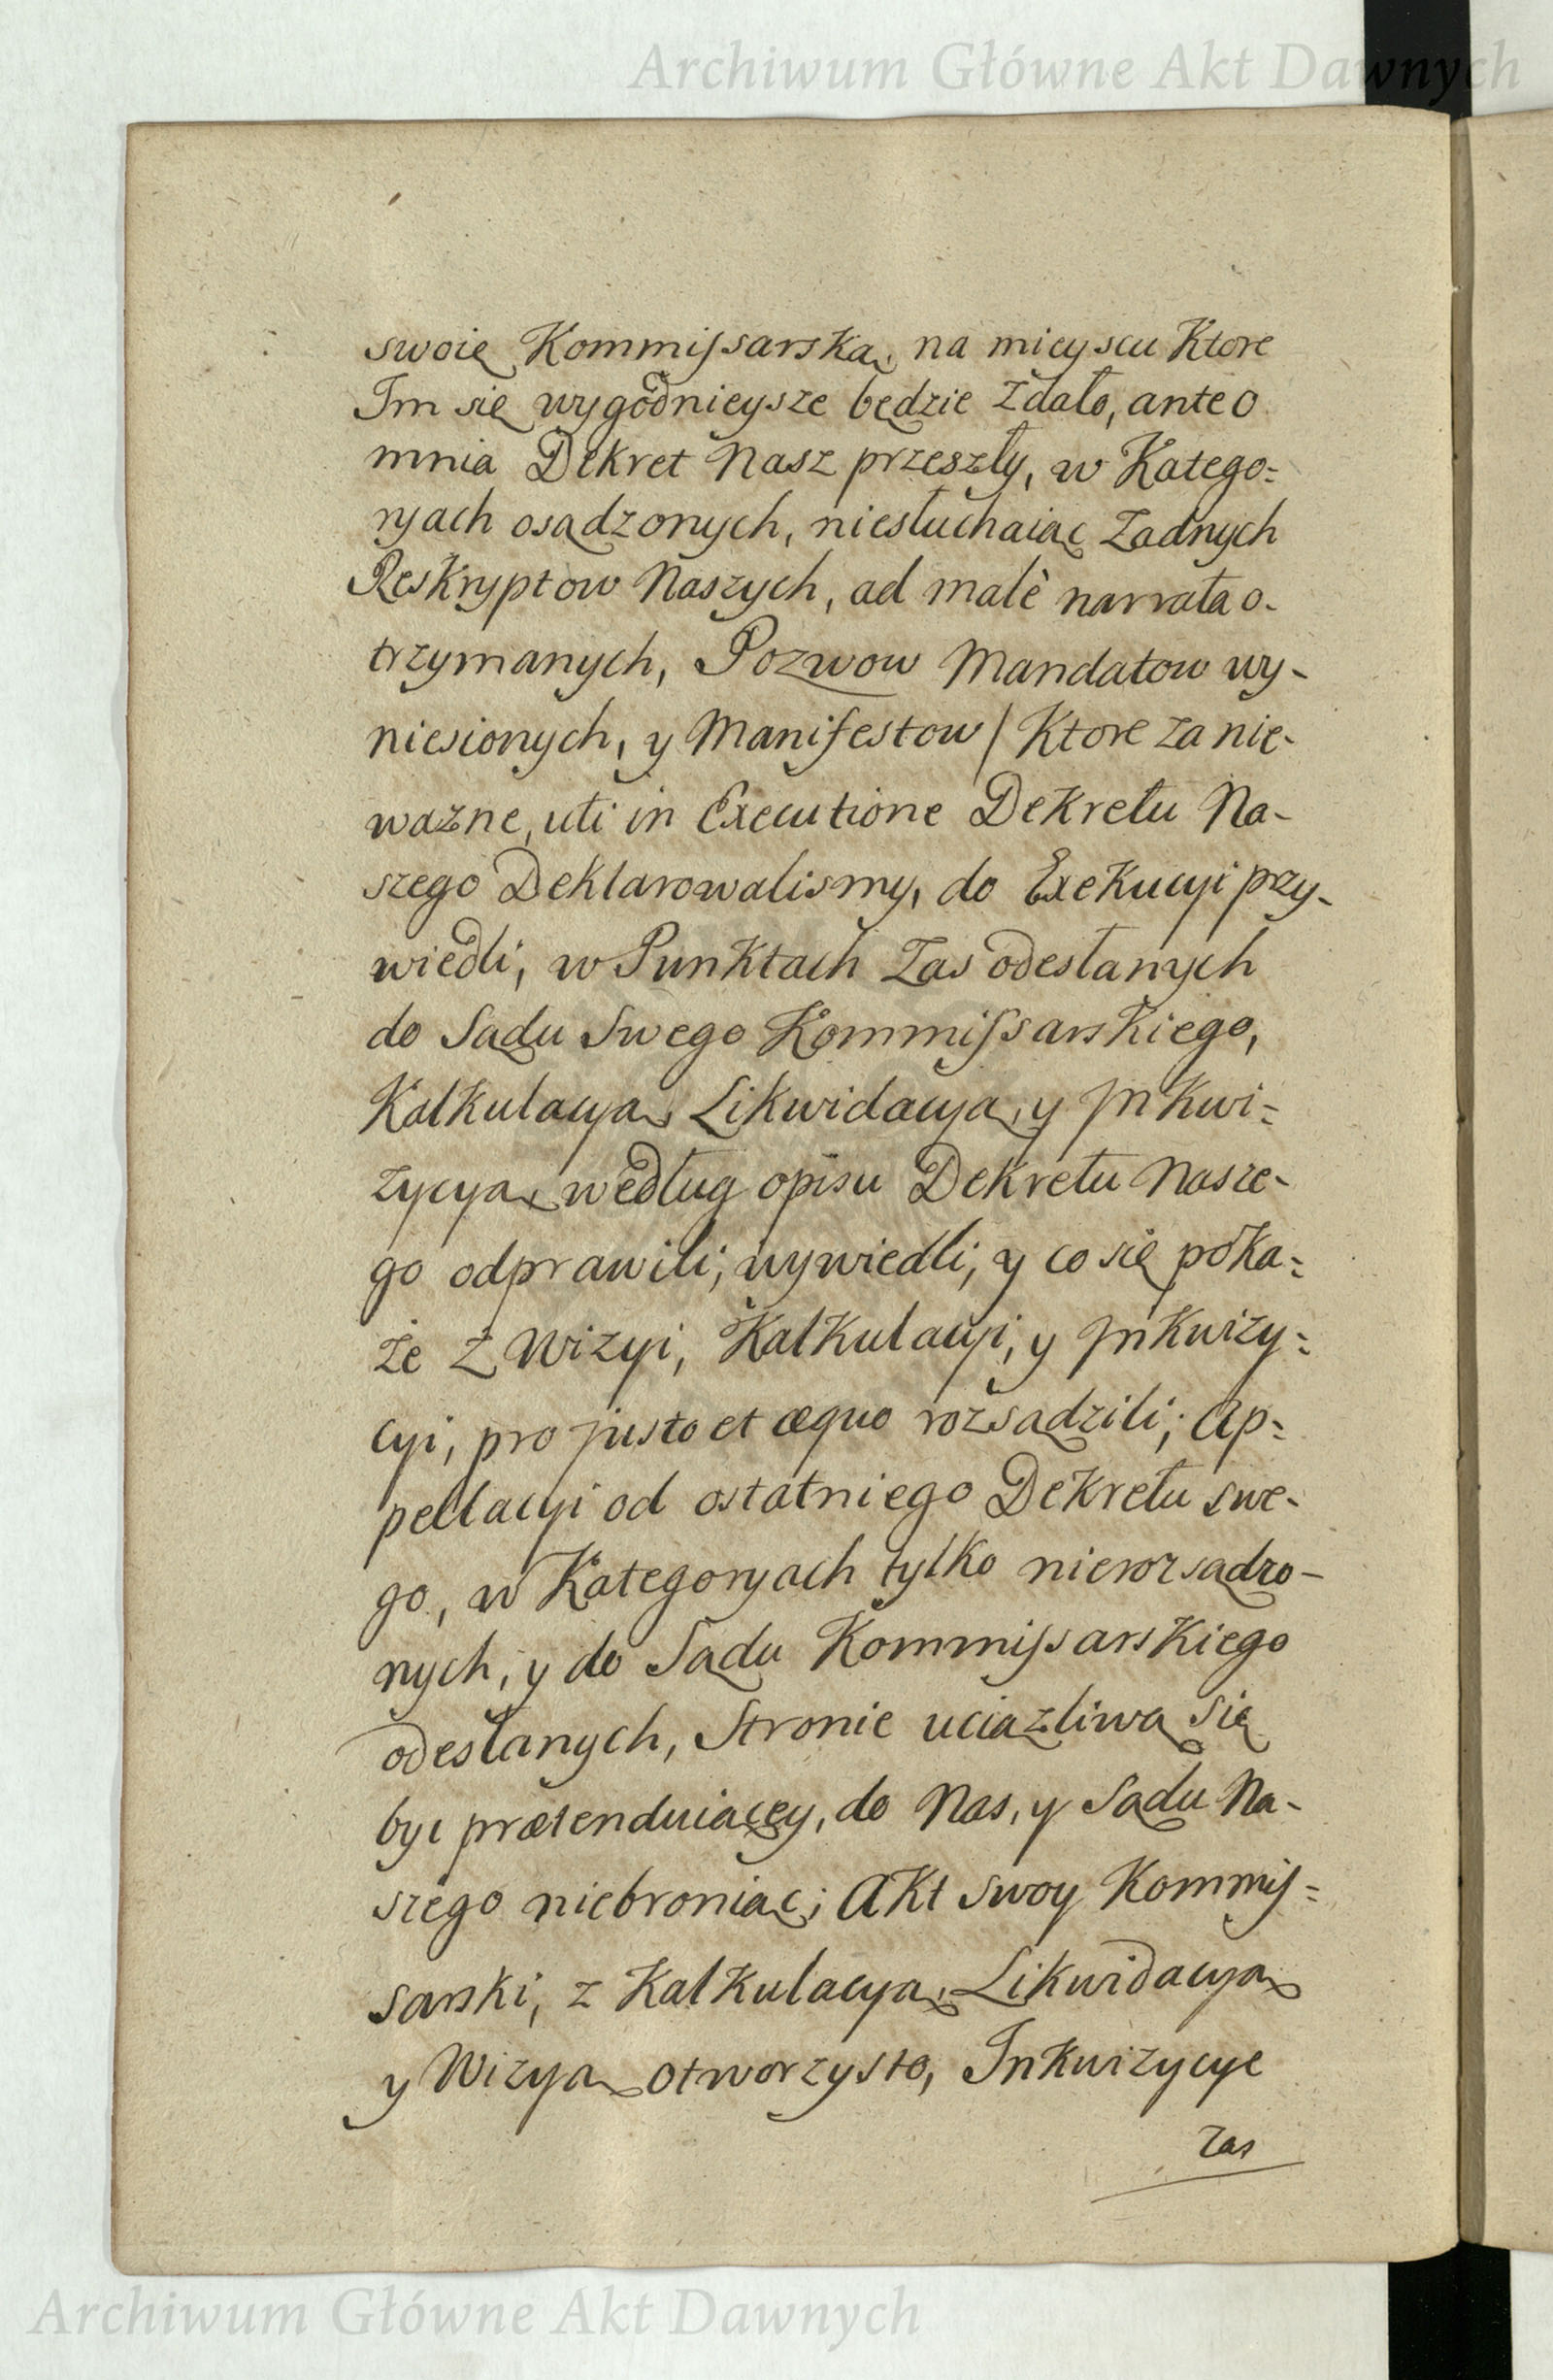 Archiwum Główne Akt Dawnych
swoię Kommissarską, na mieyscu Ktore
Im się wygodnieysze będzie Zdało, ante o
mnia Dekret Nasz przeszły, w Katego=
ryach osądzonych, niesłuchaiąc Zadnych
Reskryptow Naszych, ad malè narrata o-
trzymanych, Pozwow Mandatow wy-
niesionych, y Manifestow / Ktore za nie-
wazne, uti in Executione Dekretu Na-
szego Deklarowalismy, do Exekucyi przy-
wiedli, w Punktach Zas odesłanych
do Sądu Swego Kommissarskiego,
Kalkulacyą, Likwidacyą, y Jnkwi=
zycyą, według opisu Dekretu Nasze-
go odprawili, wywiedli, y co się poka=
że Z Wizyi, Kalkulacyi, y Jnkwizy=
cyi, pro justo et æquo rozsądzili; Ap=
pellacyi od ostatniego Dekretu swe-
go, w Kategoryach tylko nierozsądzo-
nych, y do Sądu Kommissarskiego
odesłanych, Stronie uciązliwą się
byc prætenduiącey, do Nas, y Sądu Na-
szego niebroniąc; Akt swoy Kommis=
sarski, z Kalkulacyą, Likwidacyą
y Wizyą otworzysto, Inkwizycye
Zas
Archiwum Główne Akt Dawnych